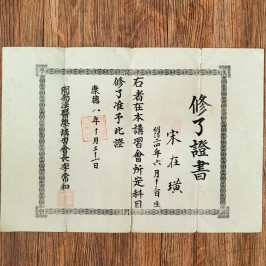 修了證書
宋在璜
明治二四年六月十二日生
右者在本講習會所定科目
修了准予此證
康德八年十月三十一日
開部漢醫學講習會長李常和